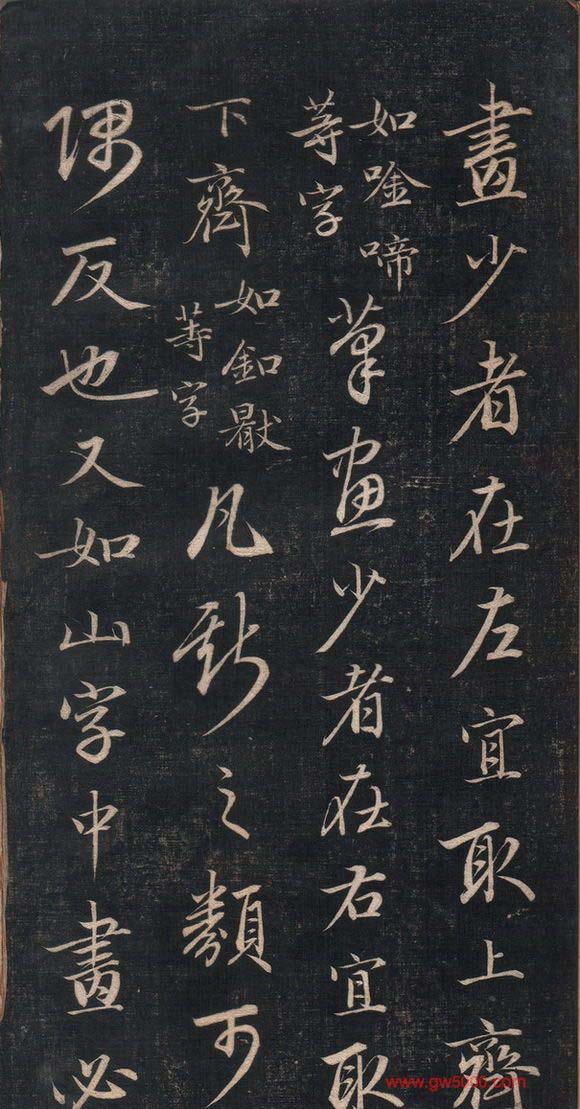 畫少者在左宜取上齊
如唫啼
等字
筆畫少者在右宜取
下齊
如釦
等字
凡斯之類可
隅反也又如山字中畫必
www.gw5000.com